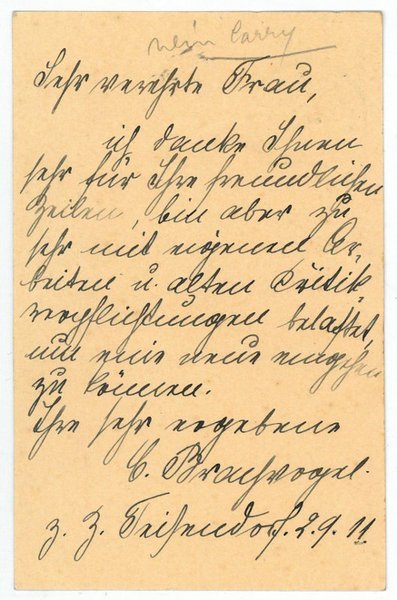 Carry
Sehr verehrte Frau,
ich danke Ihnen
sehr für Ihre freundlichen
Zeilen, bin aber zu
sehr mit eigenen Ar-
beiten u. alten Critik-
verpflichtungen belastet,
um eine neue eingehen
zu können.
Ihre sehr ergebene
C. Brachvogel.
z. Z. Teisendorf. 2.9.11